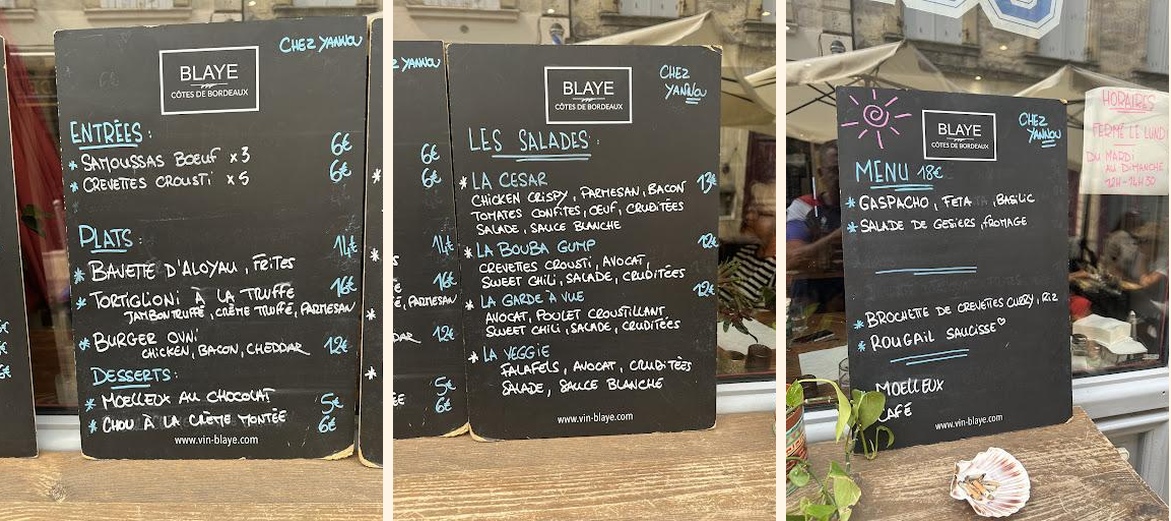 CHEZ YANNOU
BLAYE
CÔTES DE BORDEAUX
ENTRÉES :
* SAMOUSSAS BŒUF x 3 6€
* CREVETTES CROUSTI x 5 6€
PLATS : 14€
* BAVETTE D'ALOYAU, FRITES
* TORTIGLIONI À LA TRUFFE 16€
JAMBON TRUFFÉ, CRÈME TRUFFE, PARMESAN
* BURGER OVNI 12€
CHICKEN, BACON, CHEDDAR
DESSERTS :
* MOELLEUX AU CHOCOLAT 5€
* CHOU À LA CRÈME MONTÉE 6€
www.vin-blaye.com
EZ YANNOU
6€
6€
14€
16€
, PARMESAN
12€
5€
6€
BLAYE
CÔTES DE BORDEAUX
CHEZ
YANNOU
LES SALADES :
* LA CESAR 13€
CHICKEN CRISPY, PARMESAN, BACON
TOMATES CONFITES, OEUF, CRUDITÉES
SALADE, SAUCE BLANCHE
* LA BOUBA GUMP 12€
CREVETTES CROUSTI, AVOCAT,
SWEET CHILI, SALADE, CRUDITÉES
* LA GARDE À VUE 12€
AVOCAT, POULET CROUSTILLANT
SWEET CHILI, SALADE, CRUDITÉES
* LA VEGGIE
FALAFELS, AVOCAT, CRUDITÉES
SALADE, SAUCE BLANCHE
www.vin-blaye.com
BLAYE
CÔTES DE BORDEAUX
CHEZ
YANNOU
MENU 18€
* GASPACHO, FETA, BASILIC
* SALADE DE GESIERS, FROMAGE
* BROCHETTE DE CREVETTES CURRY, RIZ
* ROUGAIL SAUCISSE
MOELLEUX
CAFÉ
www.vin-blaye.com
HORAIRES
FERMÉ LE LUND
DU MARDI
AU DIMANCHE
12H-14H30